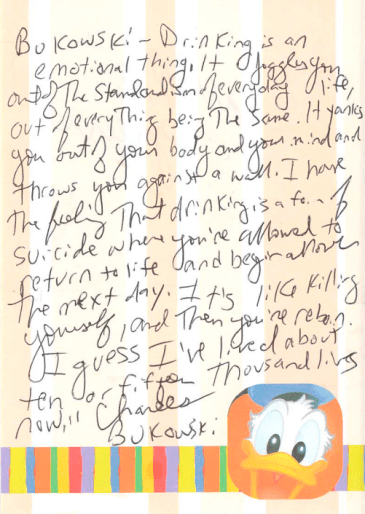 Bukowski - Drinking is an
emotional thing. It joggles you
out of The Standardism of everyday life,
out of everyThing being The Same. It yanks
you out of your body and your mind and
Throws you against a wall. I have
The feeling That drinking is a form of
Suicide where you're allowed to
return to life and begin all over
The next day. It's like Killing
yourself, and Then you're reborn.
I guess I've lived about
ten or fifteen Thousand lives
now," Charles
Bukowski